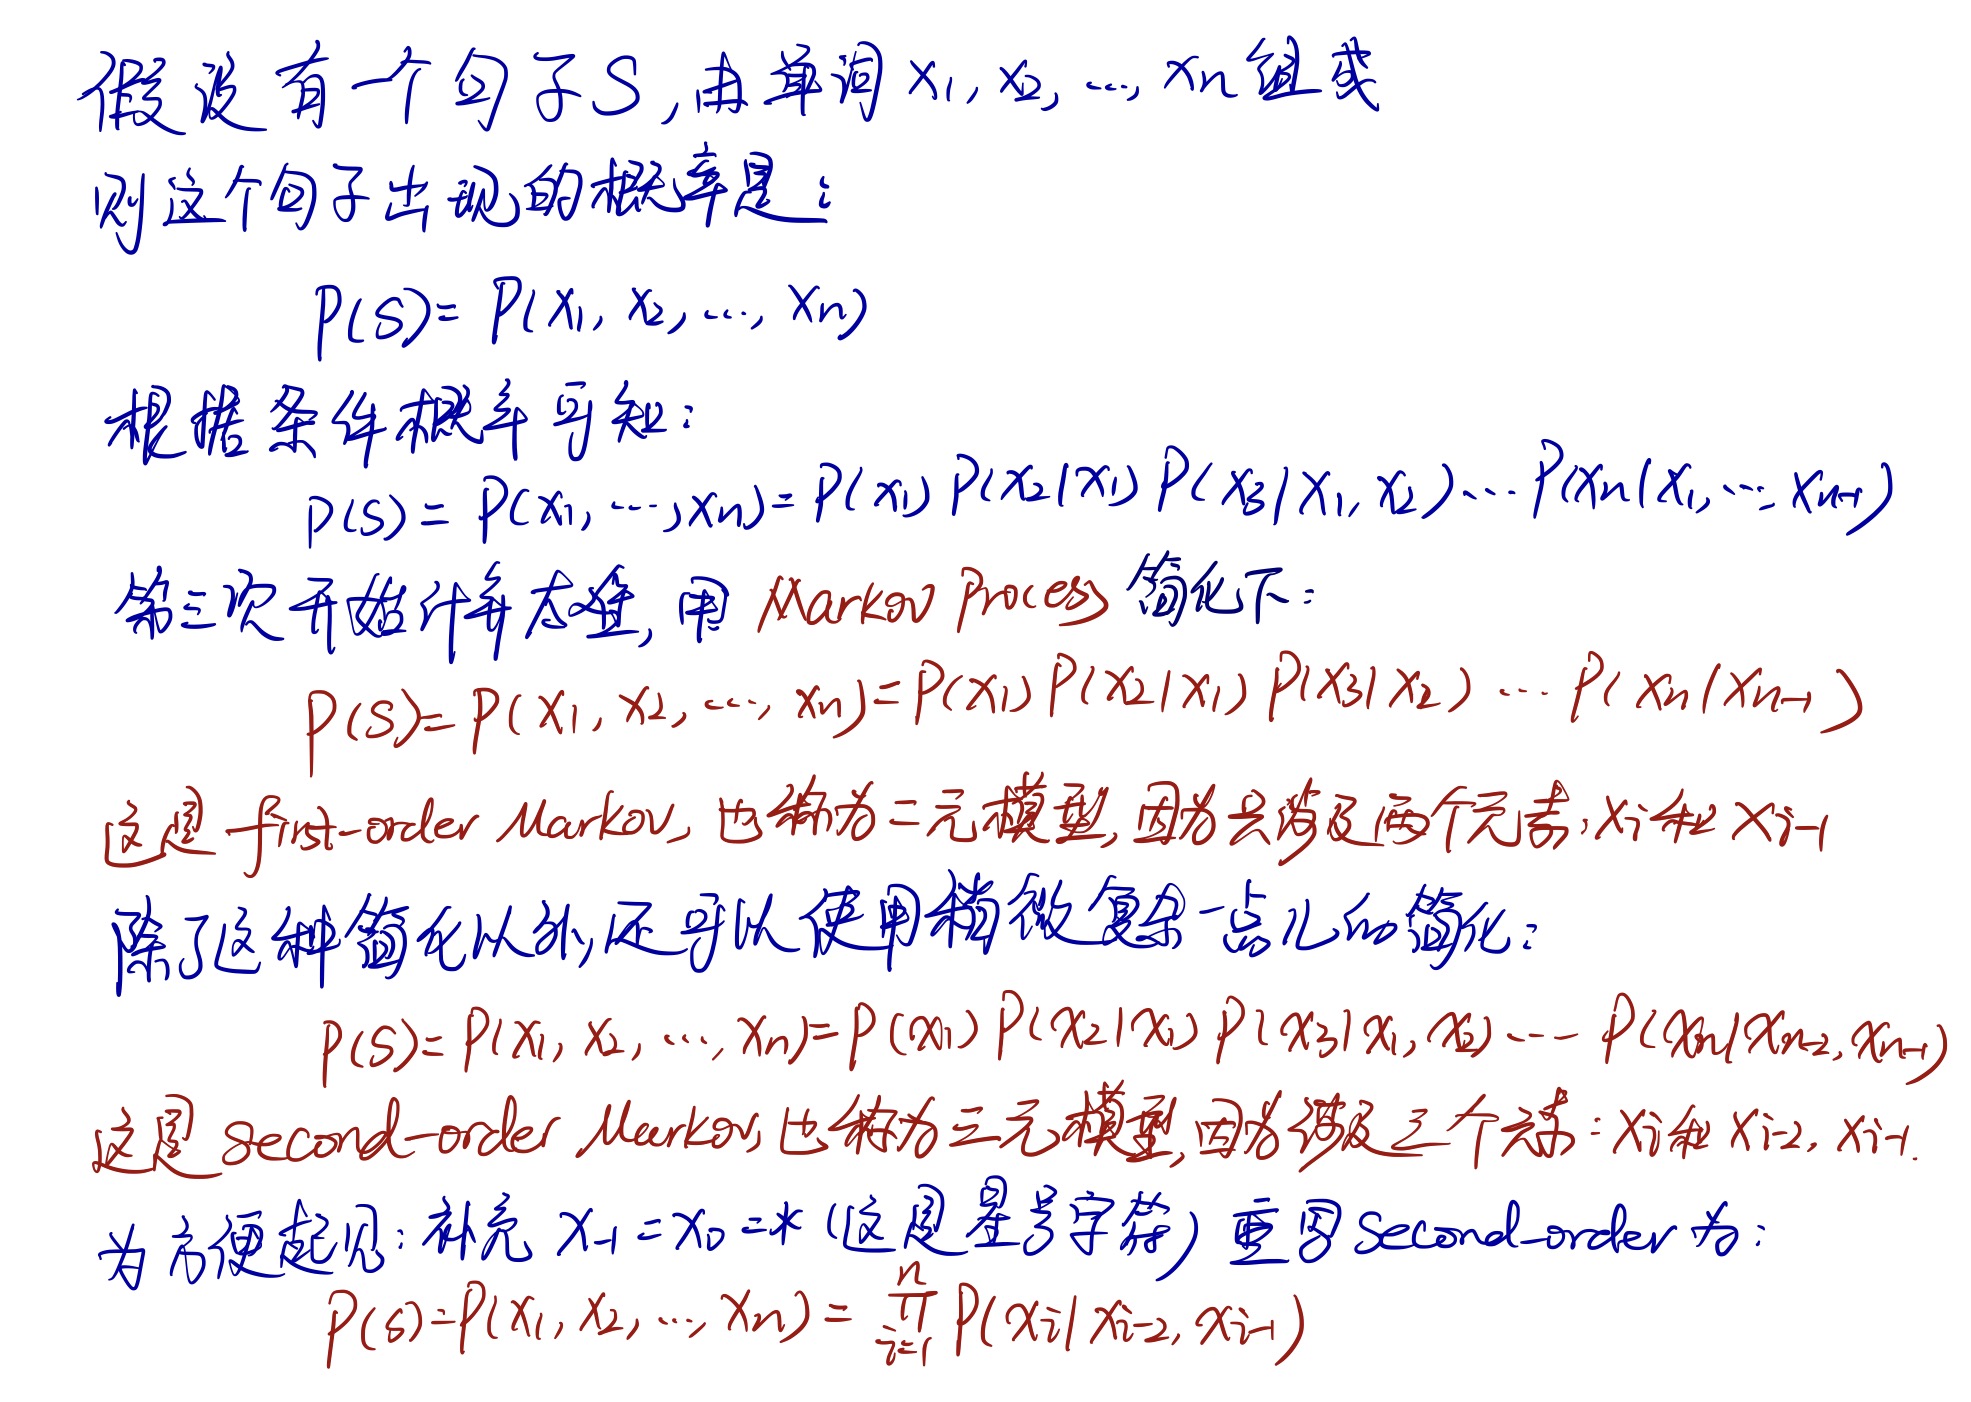 假设有一个句子S,由单词 x₁, x₂, ..., xn 组成
则这个句子出现的概率是:
P(S) = P(x₁, x₂, ..., xn)
根据条件概率可知:
P(S) = P(x₁, ..., xn) = P(x₁) P(x₂|x₁) P(x₃|x₁, x₂) ... P(xn|x₁, ..., xn-1)
第三项开始计算太难,用 Markov Process 简化下:
P(S) = P(x₁, x₂, ..., xn) = P(x₁) P(x₂|x₁) P(x₃|x₂) ... P(xn|xn-1)
这是 first-order Markov, 也称为二元模型,因为只涉及两个元素:xi和xi-1
除了这种简化以外,还可以使用稍微复杂一点儿的简化:
P(S) = P(x₁, x₂, ..., xn) = P(x₁) P(x₂|x₁) P(x₃|x₁, x₂) ... P(xn|xn-2, xn-1)
这是 second-order Markov, 也称为三元模型,因为涉及三个元素:xi和xi-2, xi-1.
为方便起见:补充 x-1 = x₀ = * (这是星号字符) 重写second-order为:
P(S) = P(x₁, x₂, ..., xn) = ∏ⁿi=1 P(xi|xi-2, xi-1)